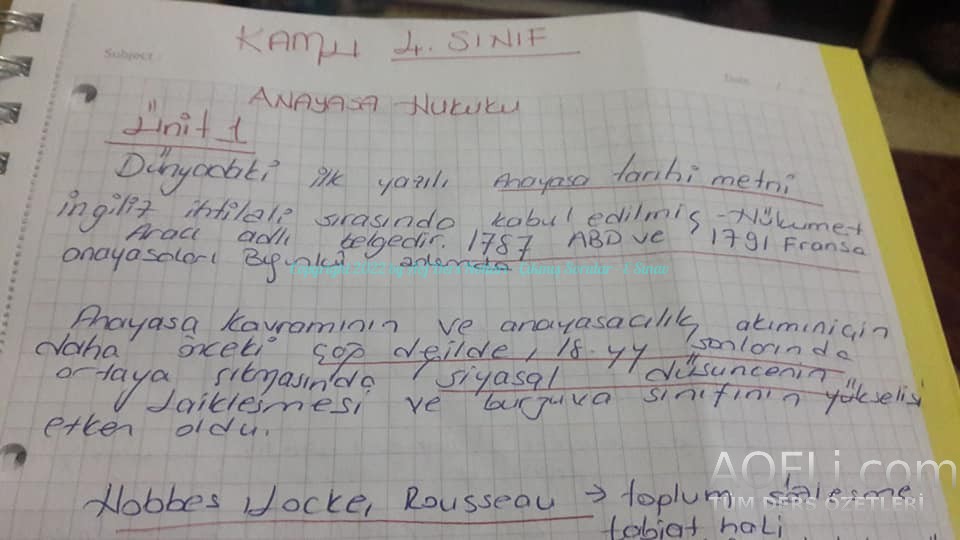 Subject:
KAMU 4. SINIF
Date
ANAYASA HUKUKU
Ünit 1
Dünyadaki ilk yazılı Anayasa tarihi metni
ingiliz ihtilali sırasında kabul edilmiş Hükumet
Aracı adlı belgedir. 1787 ABD ve 1791 Fransa
anayasaları Bugünkü anlamda
Anayasa kavramının ve anayasacılık akımıniçin
daha önceki çağ değilde, 18. yy sonlarında
ortaya çıkmasında siyasal düşüncenin
laikleşmesi ve burjuva sınıfının yükselişi
etken oldu.
Hobbes Locke, Rousseau → toplum sözleşme
tabiat hali
AOFLi.com
TÜM DERS ÖZETLERİ